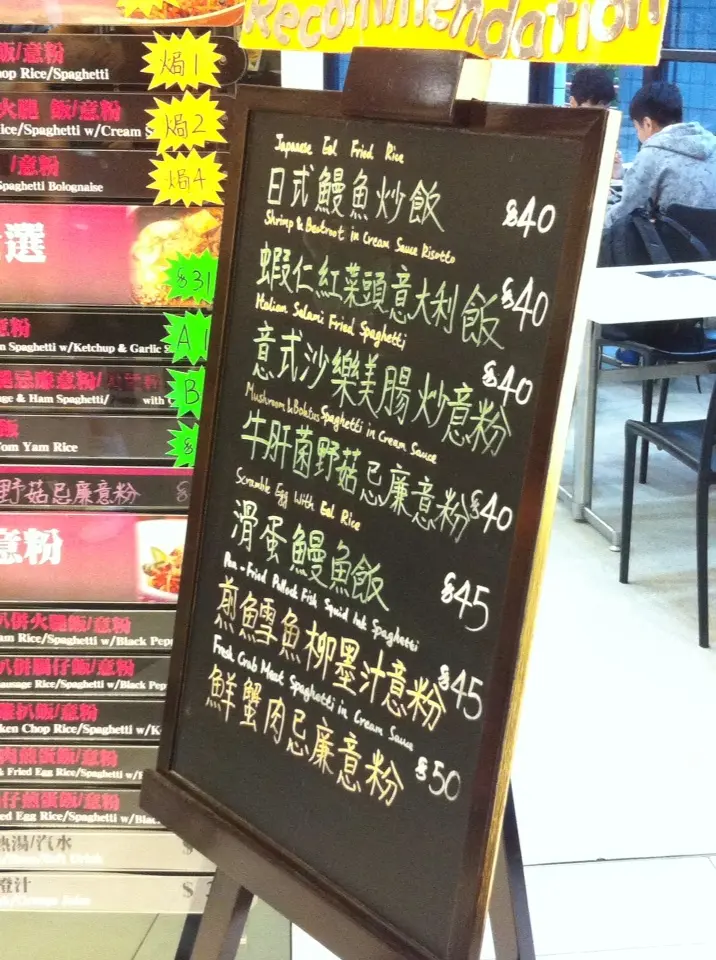 Recommendation
Japanese Eel Fried Rice
日式鰻魚炒飯 $40
Shrimp & Beetroot in Cream Sauce Risotto
蝦仁紅菜頭意大利飯 $40
Italian Salami Fried Spaghetti
意式沙樂美腸炒意粉 $40
Mushroom & Boletus Spaghetti in Cream Sauce
牛肝菌野菇忌廉意粉 $40
Scramble Egg With Eel Rice
滑蛋鰻魚飯 $45
Pan-Fried Pollock Fish Squid Ink Spaghetti
煎鱈魚柳墨汁意粉 $45
Fresh Crab Meat Spaghetti in Cream Sauce
鮮蟹肉忌廉意粉 $50
飯/意粉
hop Rice/Spaghetti
焗1
火腿 飯/意粉
ice/Spaghetti w/Cream S
焗2
/意粉
Spaghetti Bolognaise
焗4
選
$31
意粉
n Spaghetti w/Ketchup & Garlic
A1
忌廉意粉/
ge & Ham Spaghetti/ with C
B
飯
om Yam Rice
野菇忌廉意粉
意粉
扒併火腿飯/意粉
am Rice/Spaghetti w/Black Pepp
扒併腸仔飯/意粉
ausage Rice/Spaghetti w/Black Pep
雞扒飯/意粉
ken Chop Rice/Spaghetti w/K
肉煎蛋飯/意粉
& Fried Egg Rice/Spaghetti w/B
仔煎蛋飯/意粉
ed Egg Rice/Spaghetti w/Blac
熱湯/汽水 $
橙汁 $